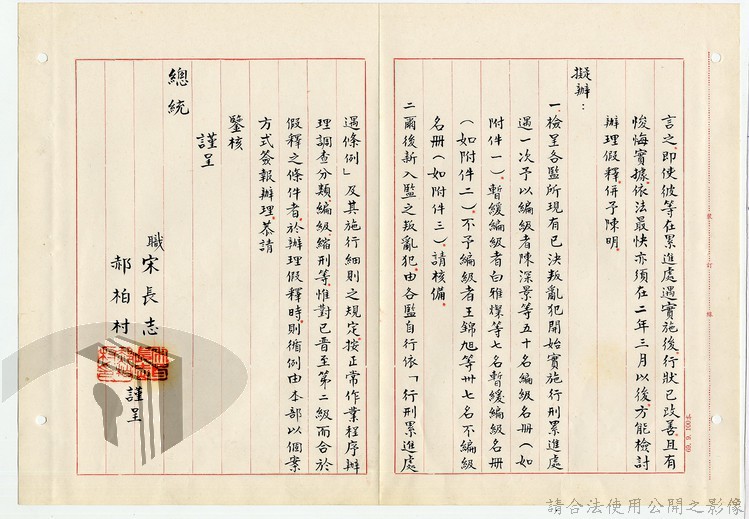 言之，即使彼等在累進處遇實施後，行狀已改善，且有
悛悔實據，依法最快亦須在二年三月以後，方能檢討
辦理假釋，併予陳明。
擬辦：
一、檢呈各監所現有已決叛亂犯開始實施行刑累進處
遇一次予以編級者陳深景等五十名編級名冊（如
附件一）、暫緩編級者白雅燦等七名暫緩編級名冊
（如附件二）、不予編級者王錦旭等卅七名不編級
名冊（如附件三），請核備。
二、爾後新入監之叛亂犯，由各監自行依「行刑累進處
遇條例」及其施行細則之規定，按正常作業程序辦
理調查分類、編級、縮刑等，惟對已晉至第二級而合於
假釋之條件者，於辦理假釋時，則循例由本部以個案
方式簽報辦理，恭請
鑒核
謹呈
總統
職宋長志
郝柏村
謹呈
裝 訂 線
69. 9. 100本
請合法使用公開之影像